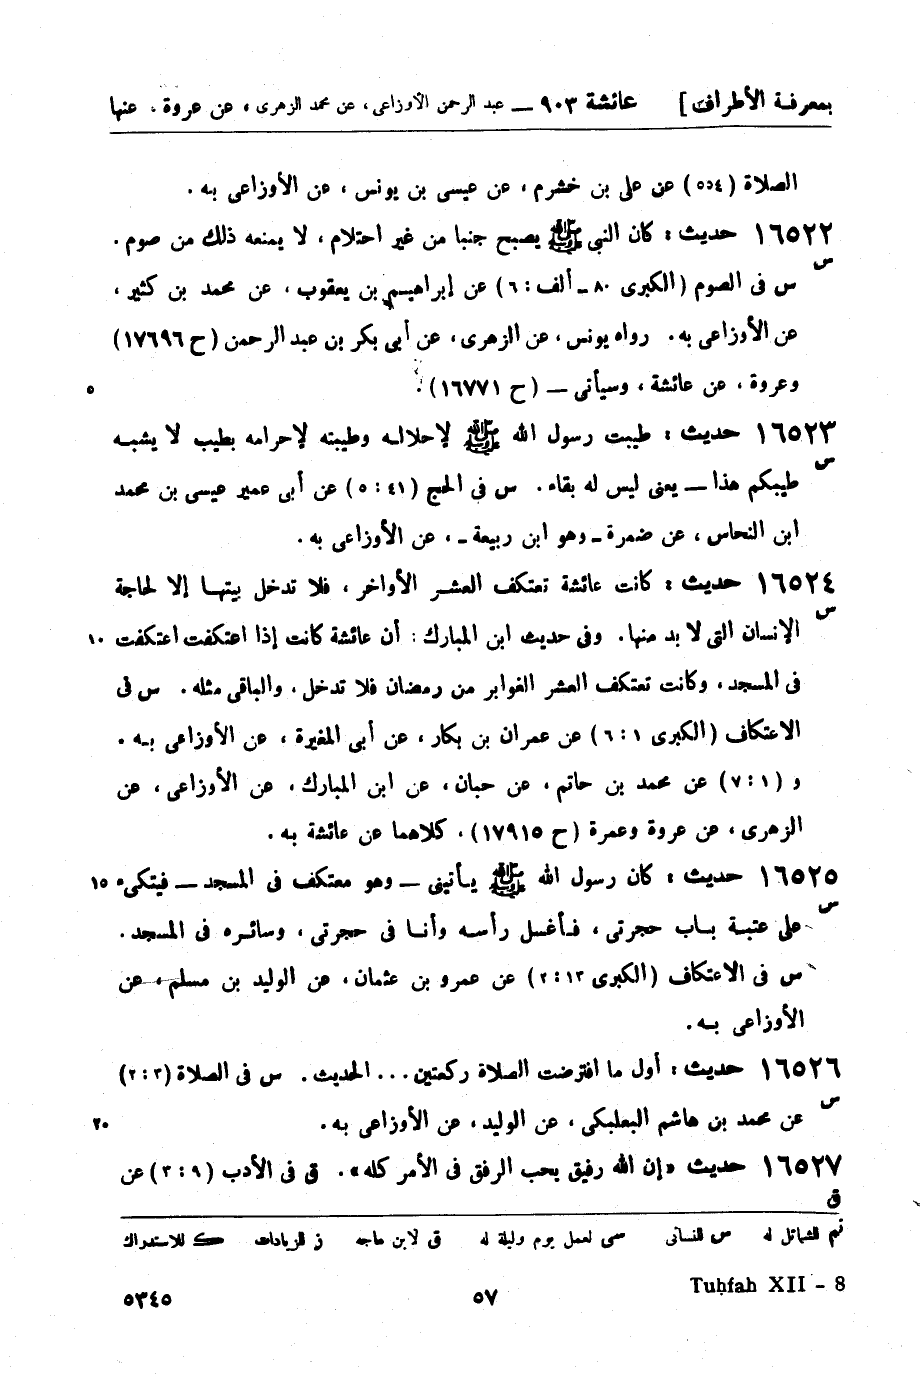 بمعرفة الأطراف] عائشة ٩٠٣ — عبد الرحمن الأوزاعى، عن محمد الزهرى، عن عروة، عنها
الصلاة (٥٥٤) عن على بن خشرم، عن عيسى بن يونس، عن الأوزاعى به.
١٦٥٢٢ حديث: كان النبى ﷺ يصبح جنبا من غير احتلام، لا يمنعه ذلك من صوم.
س س فى الصوم (الكبرى ٨٠ - ألف: ٦) عن إبراهيم بن يعقوب، عن محمد بن كثير،
عن الأوزاعى به. رواه يونس، عن الزهرى، عن أبى بكر بن عبد الرحمن (ح ١٧٦٩٦)
وعروة، عن عائشة، وسيأتى — (ح ١٦٧٧١). ٥
١٦٥٢٣ حديث: طيبت رسول الله ﷺ لإحلاله وطيبته لإحرامه بطيب لا يشبه
س طيبكم هذا — يعنى ليس له بقاء. س فى الحج (٤١: ٥) عن أبى عمير عيسى بن محمد
ابن النحاس، عن ضمرة - وهو ابن ربيعة -، عن الأوزاعى به.
١٦٥٢٤ حديث: كانت عائشة تعتكف العشر الأواخر، فلا تدخل بيتها إلا لحاجة
س الإنسان التى لا بد منها. وفى حديث ابن المبارك: أن عائشة كانت إذا اعتكفت اعتكفت ١٠
فى المسجد، وكانت تعتكف العشر الغوابر من رمضان فلا تدخل، والباقى مثله. س فى
الاعتكاف (الكبرى ١: ٦) عن عمران بن بكار، عن أبى المغيرة، عن الأوزاعى به.
و (١: ٧) عن محمد بن حاتم، عن حبان، عن ابن المبارك، عن الأوزاعى، عن
الزهرى، عن عروة وعمرة (ح ١٧٩١٥)، كلاهما عن عائشة به.
١٦٥٢٥ حديث: كان رسول الله ﷺ يأتينى — وهو معتكف فى المسجد — فيتكىء ١٥
س على عتبة باب حجرتى، فأغسل رأسه وأنا فى حجرتى، وسائره فى المسجد.
س فى الاعتكاف (الكبرى ١٣: ٢) عن عمرو بن عثمان، عن الوليد بن مسلم، عن
الأوزاعى به.
١٦٥٢٦ حديث: أول ما افترضت الصلاة ركعتين... الحديث. س فى الصلاة (٣: ٢)
س عن محمد بن هاشم البعلبكى، عن الوليد، عن الأوزاعى به. ٢٠
١٦٥٢٧ حديث «إن الله رفيق يحب الرفق فى الأمر كله». ق فى الأدب (٩: ٣) عن
ق
تم للشمائل له س للنسائى سى لعمل يوم وليلة له ق لابن ماجه ز للزيادات ك للاستدراك
Tuḥfah XII – 8 ٥٧ ٥٣٤٥